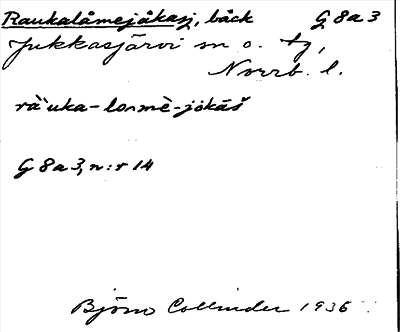 Raukalåmejåkasj, bäck G 8 a 3
Jukkasjärvi sn o. tg,
Norrb. l.
rà`uka-lomè-jòkāš
G 8 a 3, n:r 14
Björn Collinder 1936